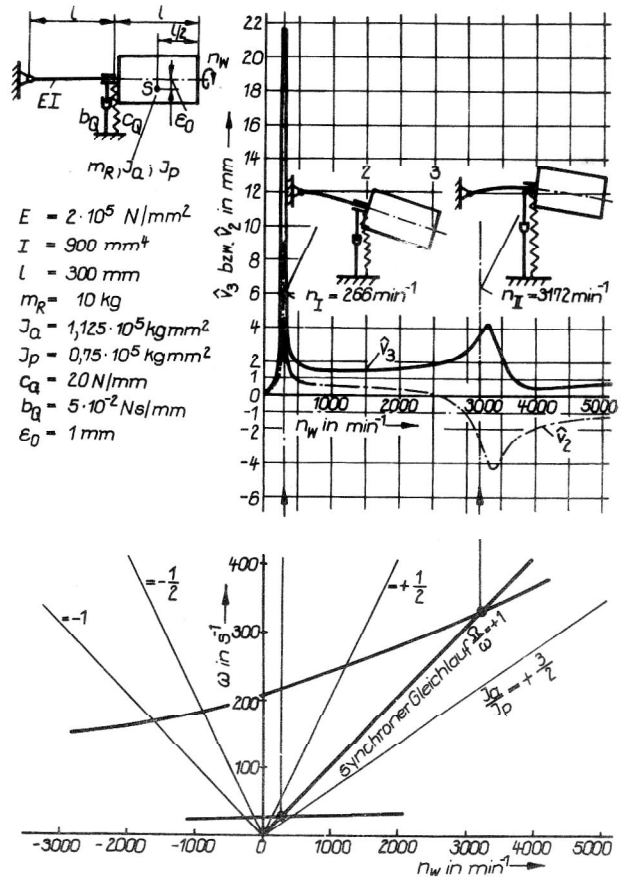 l
l
l/2
n_W
EI
S
ε₀
b_Q
c_Q
m_R, J_a, J_p
E = 2·10⁵ N/mm²
I = 900 mm⁴
l = 300 mm
m_R = 10 kg
J_a = 1,125·10⁵ kgmm²
J_p = 0,75·10⁵ kgmm²
c_Q = 20 N/mm
b_Q = 5·10⁻² Ns/mm
ε₀ = 1 mm
v̂₃ bzw. v̂₂ in mm
22
20
18
16
14
12
10
8
6
4
2
1
0
-1
-2
-4
-6
2
3
n_I = 266 min⁻¹
n_II = 3172 min⁻¹
v̂₃
v̂₂
1000
2000
3000
4000
5000
n_W in min⁻¹
ω in s⁻¹
400
300
200
100
=-1
=-1/2
=+1/2
synchroner Gleichlauf Ω/ω=+1
J_a/J_p=+3/2
-3000
-2000
-1000
0
1000
2000
3000
4000
5000
n_W in min⁻¹